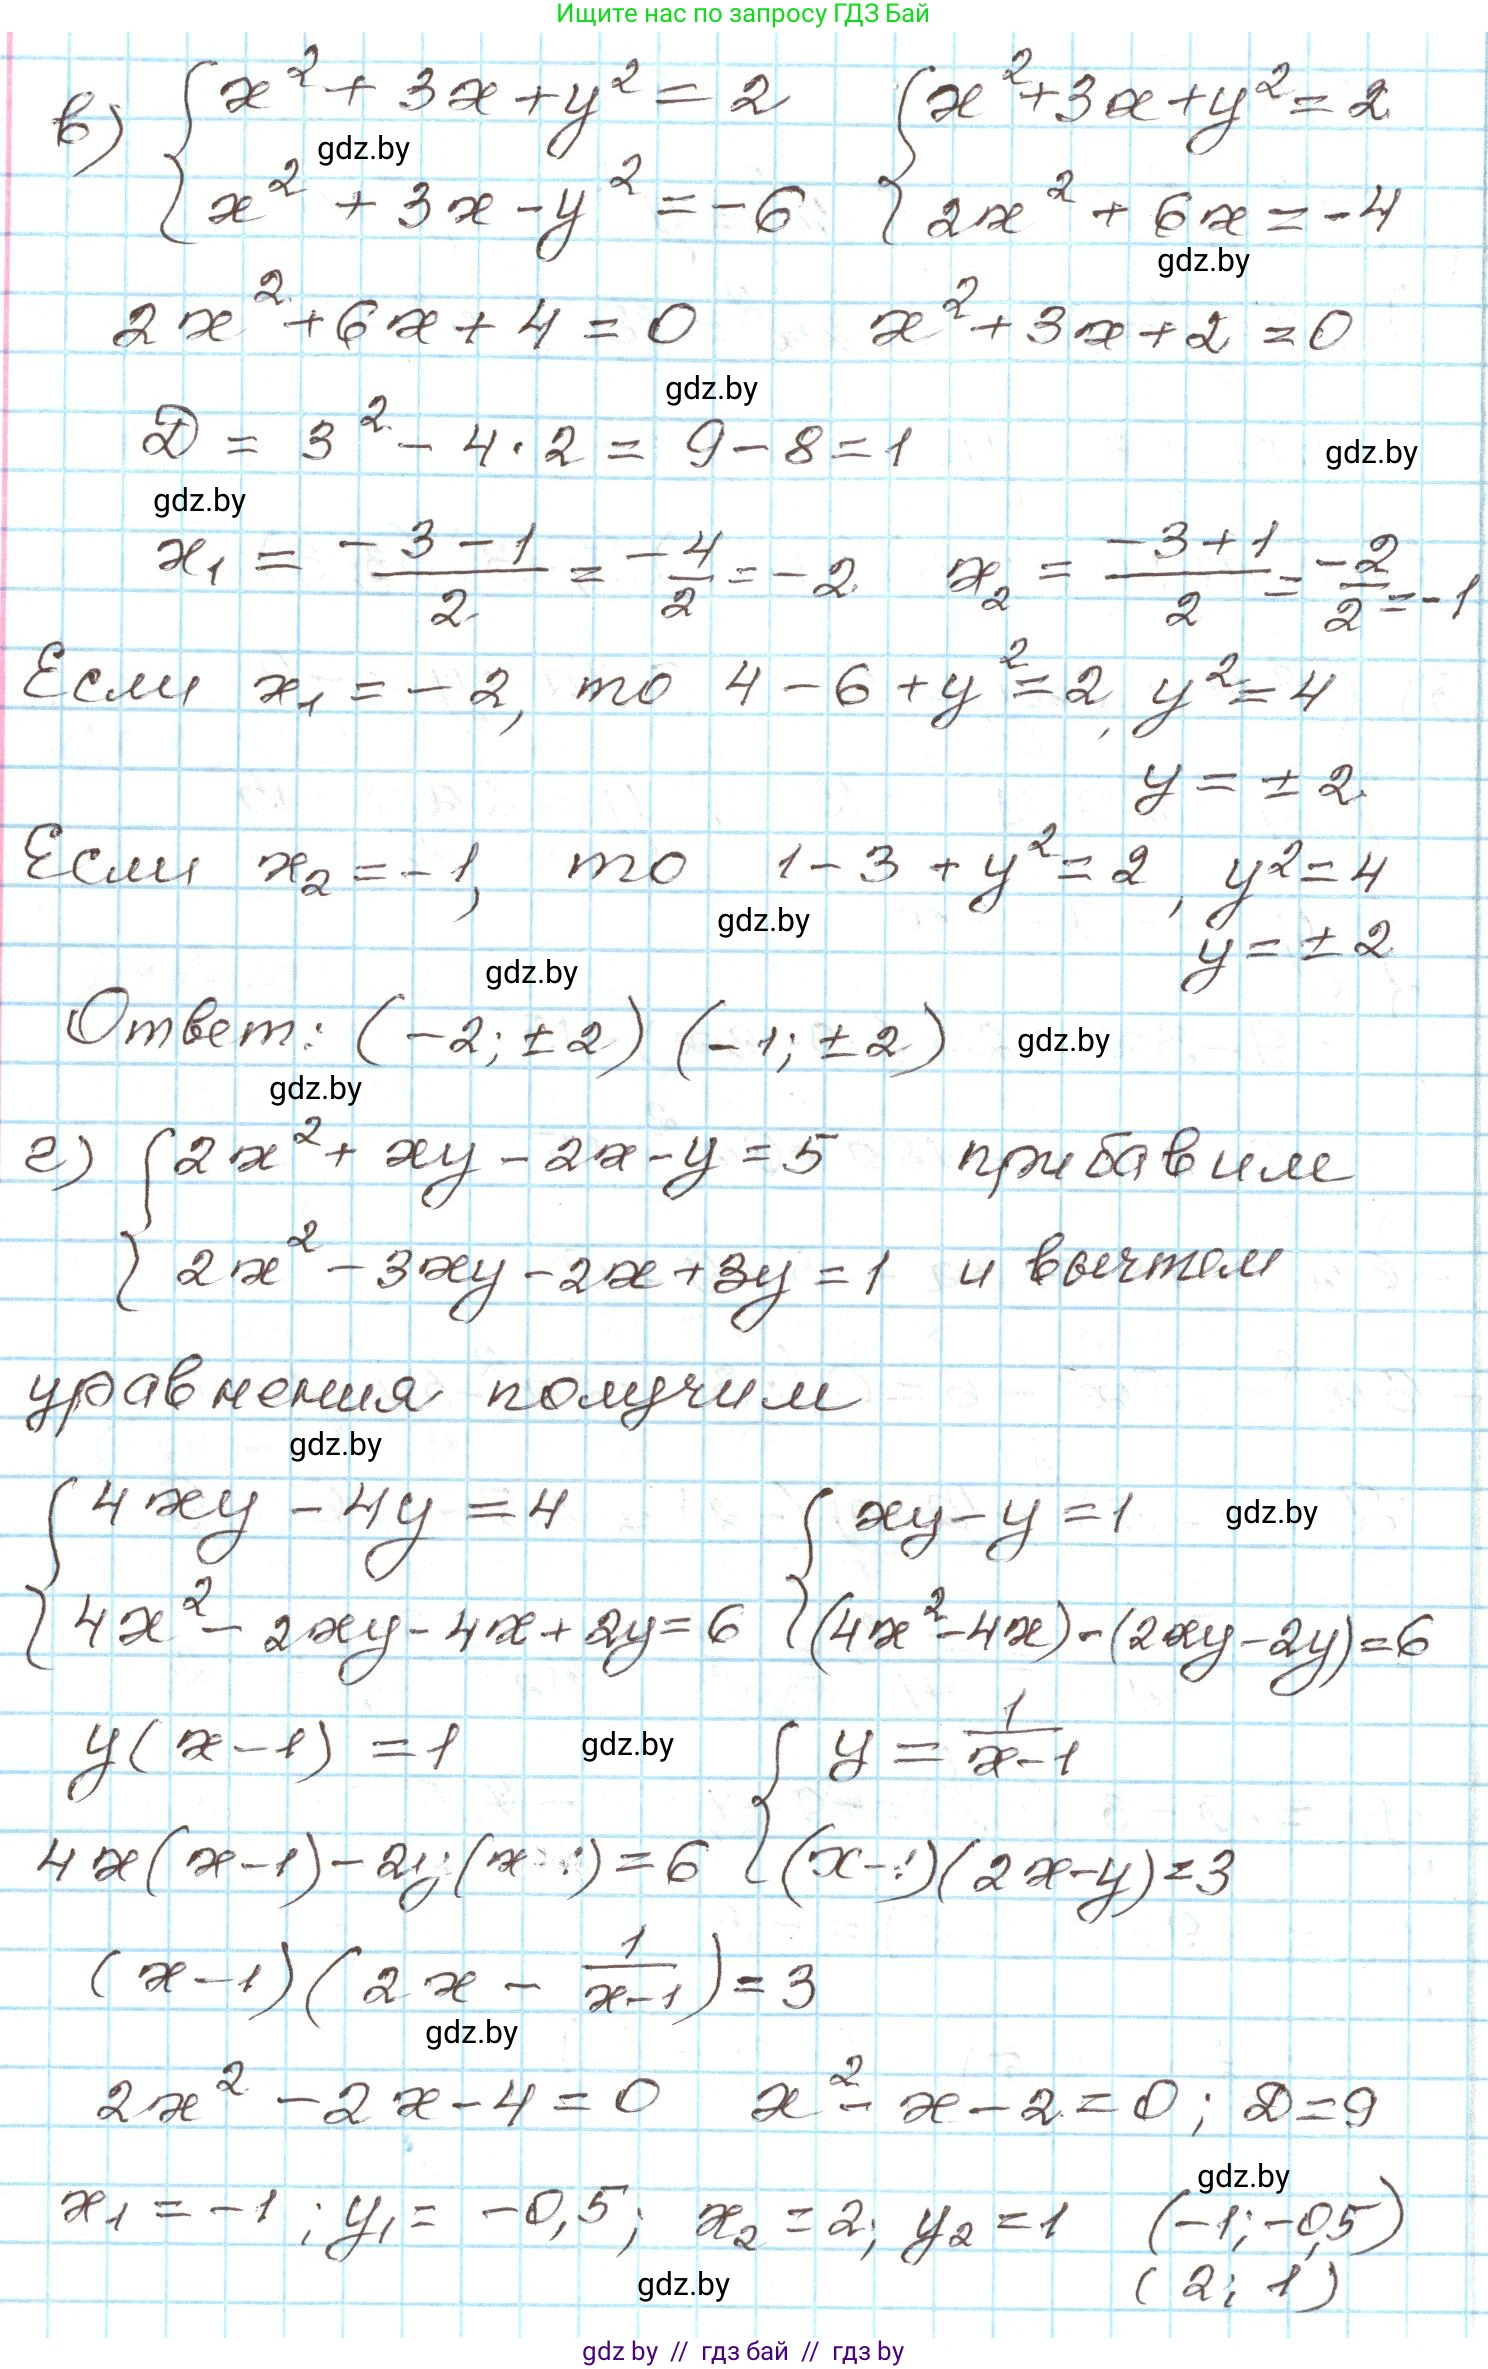 Ищите нас по запросу ГДЗ Бай
в) { x² + 3x + y² = 2 { x² + 3x + y² = 2
gdz.by
x² + 3x - y² = -6 2x² + 6x = -4
gdz.by
2x² + 6x + 4 = 0 x² + 3x + 2 = 0
gdz.by
D = 3² - 4·2 = 9 - 8 = 1 gdz.by
gdz.by
x₁ = (-3-1)/2 = -4/2 = -2 x₂ = (-3+1)/2 = -2/2 = -1
Если x₁ = -2, то 4 - 6 + y² = 2, y² = 4
y = ±2
Если x₂ = -1, то 1 - 3 + y² = 2, y² = 4
gdz.by
y = ±2
gdz.by
Ответ: (-2; ±2) (-1; ±2) gdz.by
gdz.by
г) { 2x² + xy - 2x - y = 5 прибавим
2x² - 3xy - 2x + 3y = 1 и вычтем
уравнения получим
gdz.by
{ 4xy - 4y = 4 { xy - y = 1 gdz.by
4x² - 2xy - 4x + 2y = 6 (4x² - 4x) - (2xy - 2y) = 6
y(x-1) = 1 gdz.by { y = 1/(x-1)
4x(x-1) - 2y(x-1) = 6 (x-1)(2x-y) = 3
(x-1)(2x - 1/(x-1)) = 3
gdz.by
2x² - 2x - 4 = 0 x² - x - 2 = 0; D = 9
gdz.by
x₁ = -1; y₁ = -0,5; x₂ = 2; y₂ = 1 (-1; -0,5)
gdz.by (2; 1)
gdz by // гдз бай // гдз by